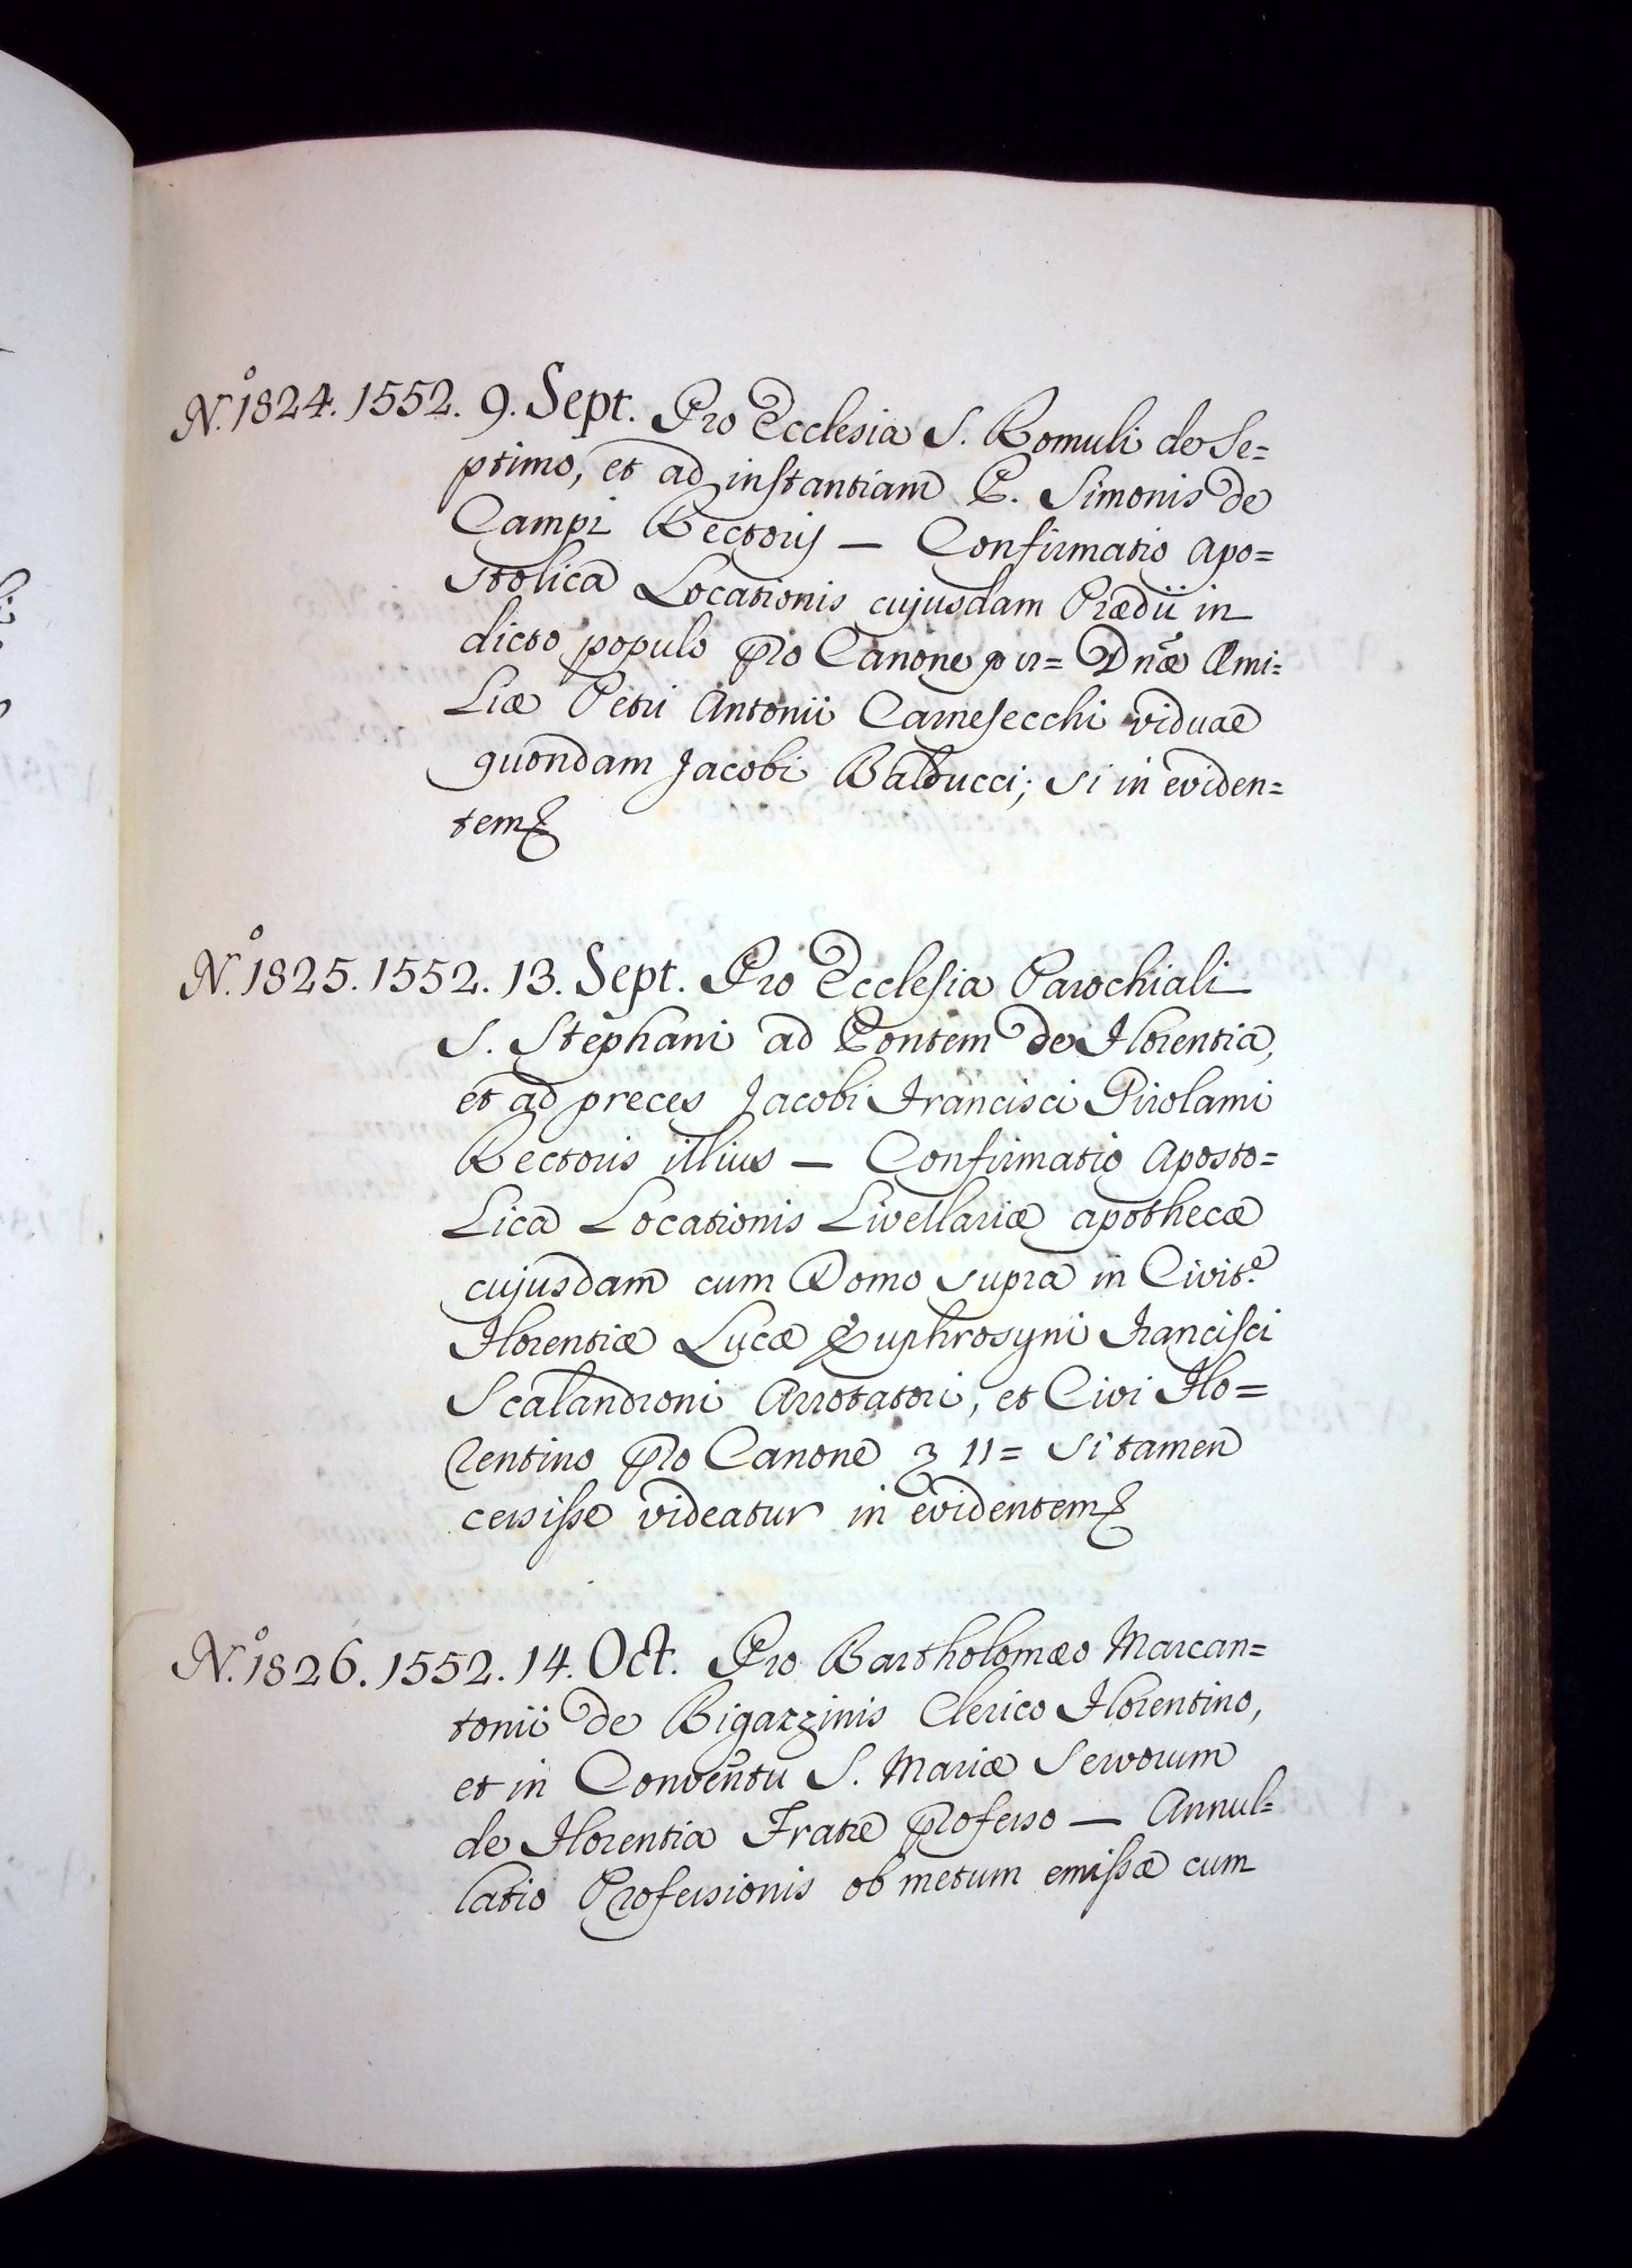 N.º 1824. 1552. 9. Sept. Pro Ecclesia S. Romuli de Se=
ptimo, et ad instantiam P. Simonis de
Campi Rectoris — Confirmatio Apo=
stolica Locationis cujusdam Prædii in
dicto populo pro Canone Dnæ Æmi=
liæ Petri Antonii Carnesecchi viduæ
quondam Jacobi Balducci; si in eviden=
tem
N.º 1825. 1552. 13. Sept. Pro Ecclesia Parochiali
S. Stephani ad Pontem de Florentia,
et ad preces Jacobi Francisci Girolami
Rectoris illius — Confirmatio Aposto=
lica Locationis Livellariæ apothecæ
cujusdam cum Domo supra in Civit.e
Florentiæ Lucæ Euphrosyni Francisci
Scalandroni Arrotatori, et Civi Flo=
rentino pro Canone 11= si tamen
cersisse videatur in evidentem
N.º 1826. 1552. 14. Oct. Pro Bartholomæo Marcan=
tonii de Bigazzinis Clerico Florentino,
et in Conventu S. Mariæ Servorum
de Florentia Fratre professo — Annul=
latio Professionis ob metum emissæ cum